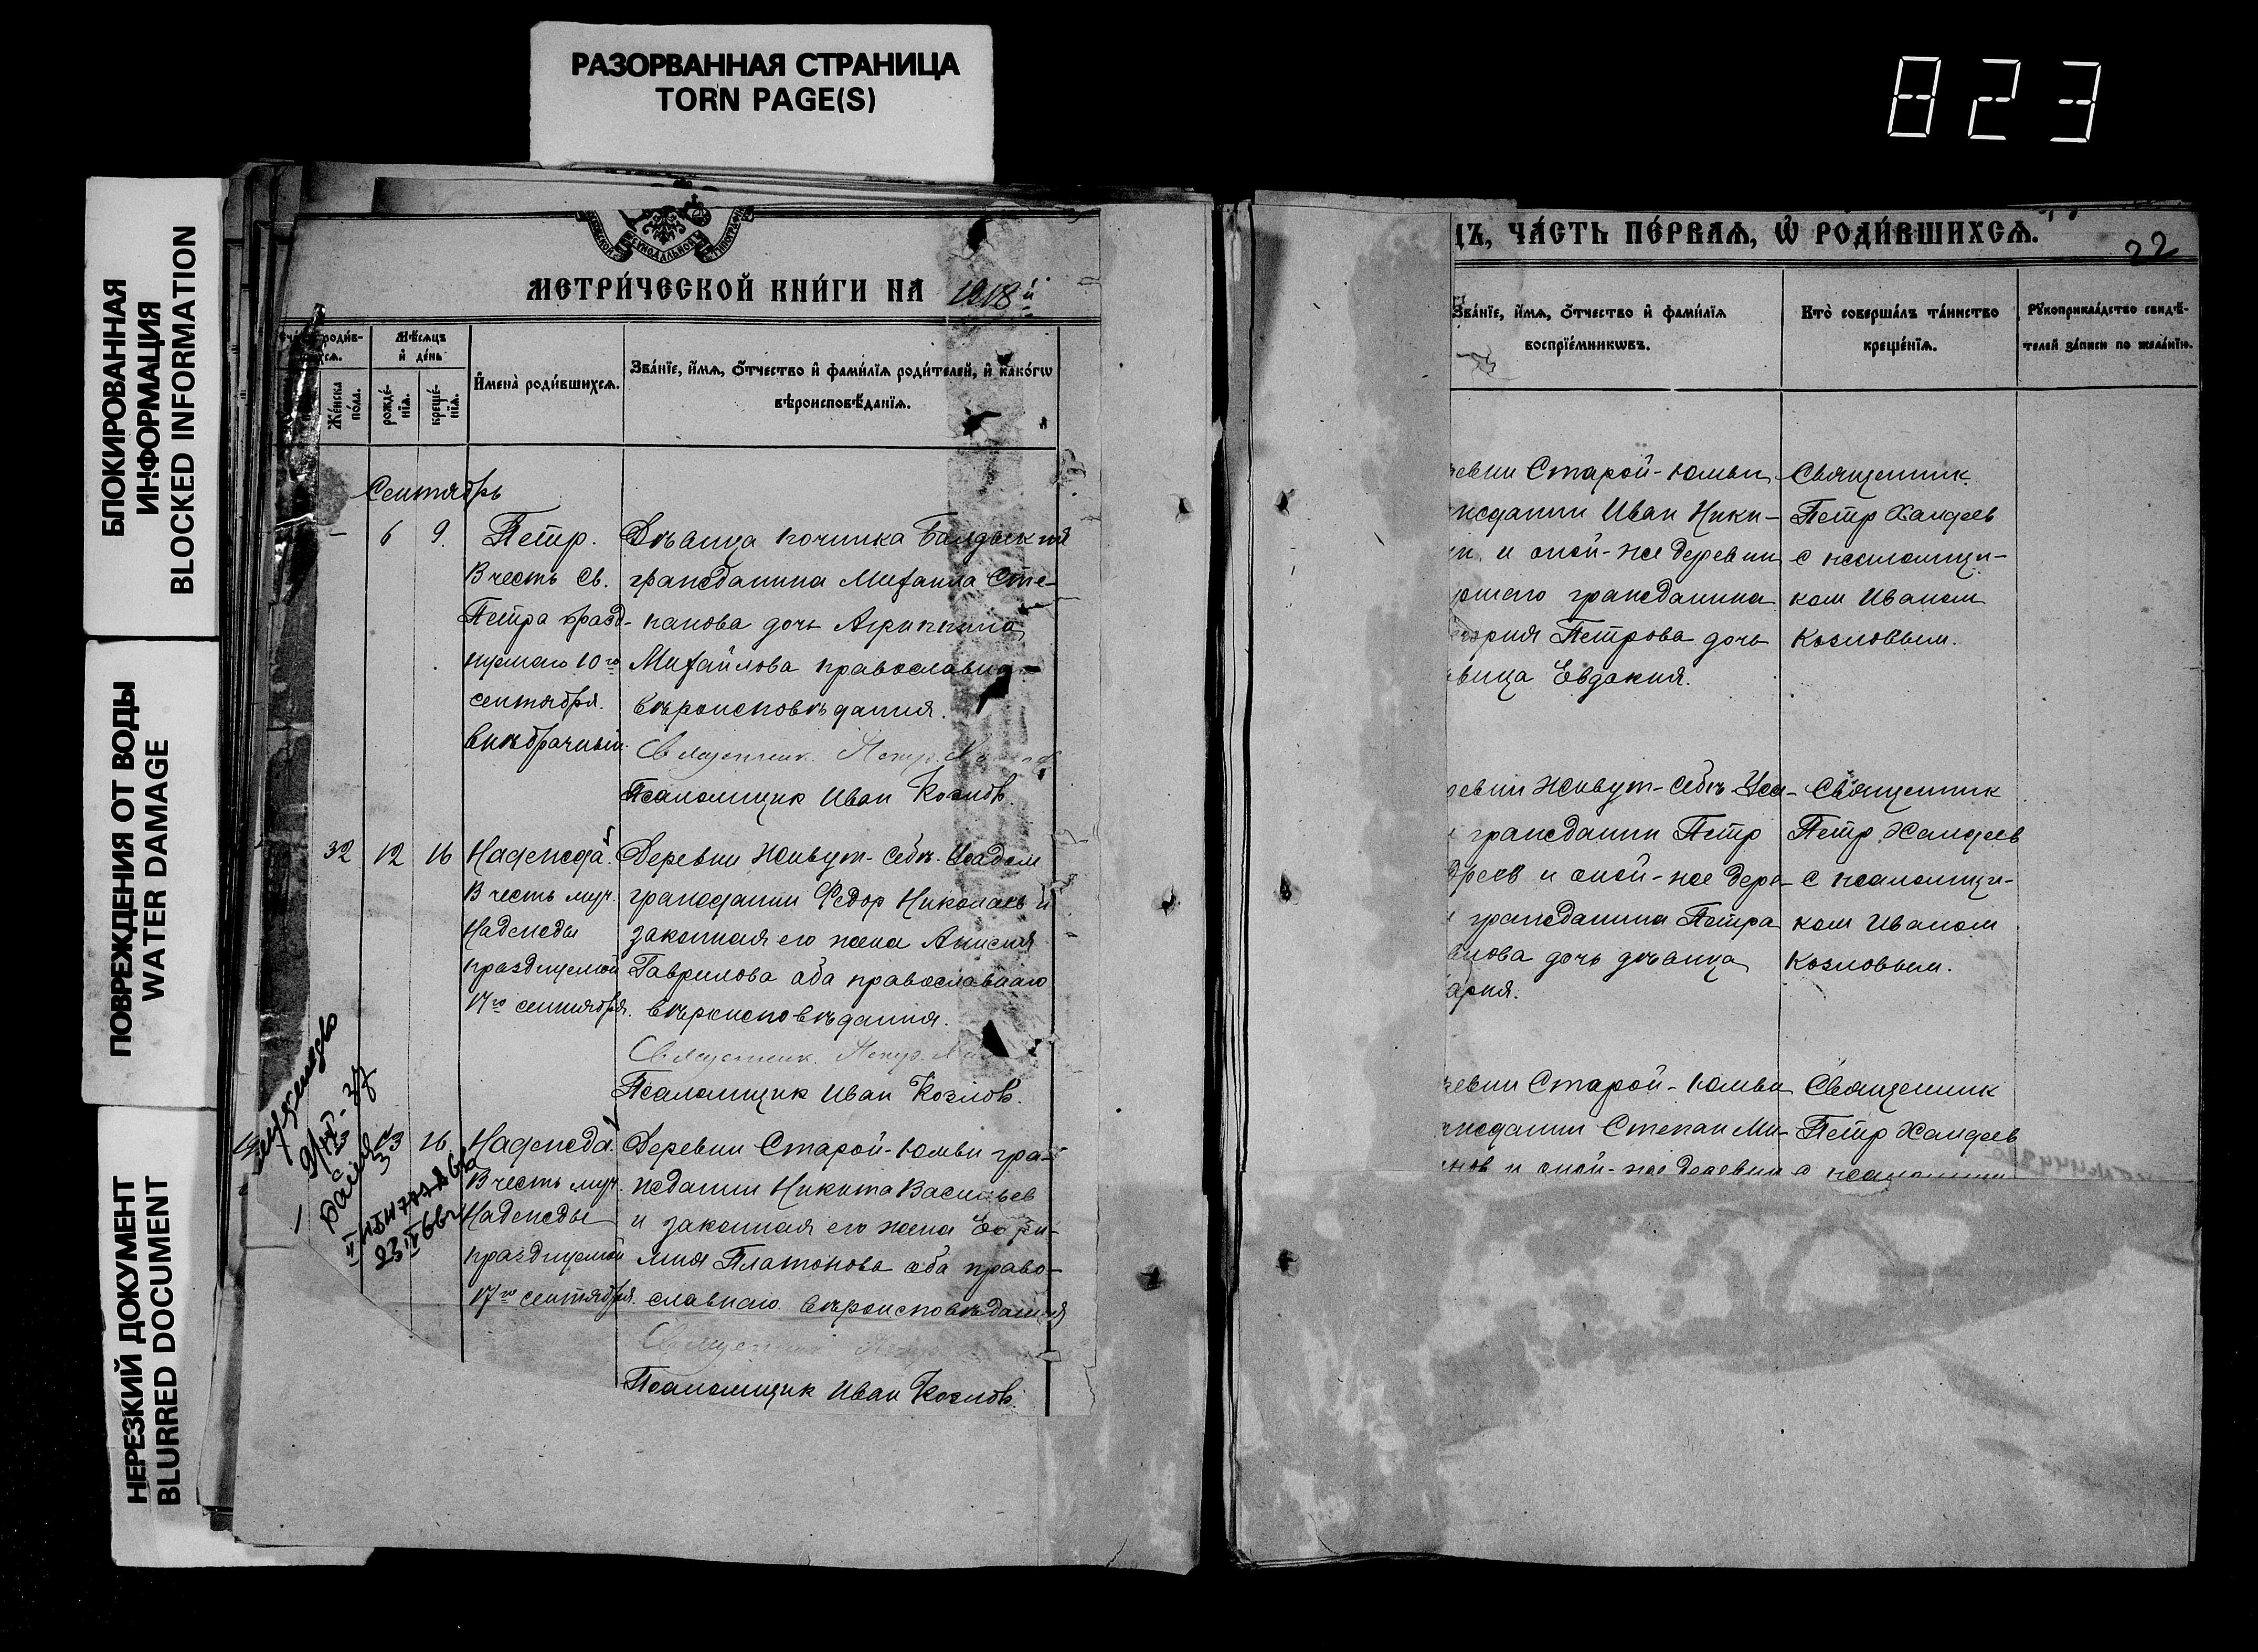 РАЗОРВАННАЯ СТРАНИЦА
TORN PAGE(S)
823
БЛОКИРОВАННАЯ
ИНФОРМАЦИЯ
BLOCKED INFORMATION
ПОВРЕЖДЕНИЯ ОТ ВОДЫ
WATER DAMAGE
НЕРЕЗКИЙ ДОКУМЕНТ
BLURRED DOCUMENT
МЕТРИ́ЧЕСКОЙ КНИ́ГИ НА 1918 й
Мѣсяцъ
и҆ де́нь
Же́нска
по́ла.
рожде́-
нїѧ.
креще́-
нїѧ.
И҆мена̀ роди́вшихсѧ.
Зва́нїе, и҆́мѧ, ѻ҆́тчество и҆ фами́лїѧ роди́телей, и҆ како́гѡ
вѣроисповѣ́данїѧ.
Сентябрь
– 6 9.
Петр.
В честь св.
Петра празд-
нуемаго 10го
сентября.
внѣбрачный.
Дѣвица починка
гражданина Михаила Сте-
панова дочь Агриппина
Михайлова православна-
вѣроисповѣдания.
Священник Петр
Псаломщик Иван Козлов.
32 12 16
Надежда.
В честь муч.
Надежды
празднуемой
17го сентября.
Деревни Живут-Себѣ-Усадом
гражданин Федор Николаев и
законная его жена Анисия
Гаврилова оба православнаго
вѣроисповѣдания.
Священник Петр
Псаломщик Иван Козлов.
33 13 16
Надежда.
В честь муч.
Надежды
празднуемой
17го сентября.
Деревни Старой-Юмьи гра-
жданин Никита Васильев
и законная его жена
мия Платонова оба право-
славнаго вѣроисповѣдания
Псаломщик Иван Козлов.
23 IX 66г
ЦЪ, ЧА́СТЬ ПЕ́РВАѦ, Ѡ҆ РОДИ́ВШИХСѦ.
22
Зва́нїе, и҆́мѧ, ѻ҆́тчество и҆ фами́лїѧ
воспрїе́мникѡвъ.
Кто̀ соверша́лъ та́инство
креще́нїѧ.
Рꙋкоприкла́дство свидѣ́-
телей за́писи по жела́нїю.
ревни Старой-Юмьи
жданин Иван Ники-
ин и оной-же деревни
ршаго гражданина
Петрова дочь
вица Евдокия.
Священник
Петр Хандеев
с псаломщи-
ком Иваном
Козловым.
ревни Живут-Себѣ-Уса-
гражданин Петр
дреев и оной-же дере-
гражданина Петра
нова дочь дѣвица
ария.
Священник
Петр Хандеев
с псаломщи-
ком Иваном
Козловым.
ревни Старой-Юмьи
жданин Степан Ми-
нов и оной-же деревни
Священник
Петр Хандеев
с псаломщи